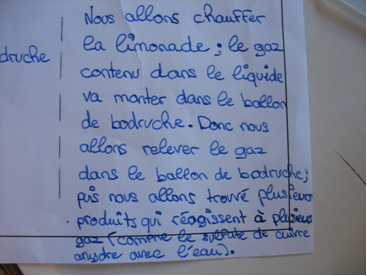 Nous allons chauffer
la limonade ; le gaz
druche
contenu dans le liquide
va monter dans le ballon
de bodruche. Donc nous
allons relever le gaz
dans le ballon de bodruche ;
puis nous allons trouvé plusieurs
produits qui réagissent à plusieurs
gaz (comme le sulfate de cuivre
anydre avec l'eau).